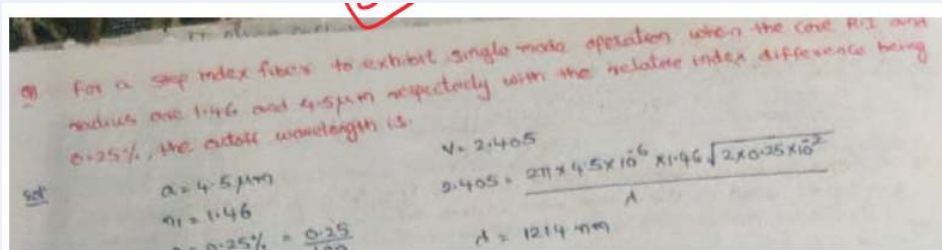 Q) For a step index fiber to exhibit single mode operation when the core R.I and
radius are 1.46 and 4.5μm respectively with the relative index difference being
0.25%, the cutoff wavelength is.
Sol a = 4.5 μm V = 2.405
n1 = 1.46 2.405 = 2π × 4.5 × 10^-6 × 1.46 √2×0.25×10^-2 / λ
= 0.25% = 0.25/100 λ = 1214 nm